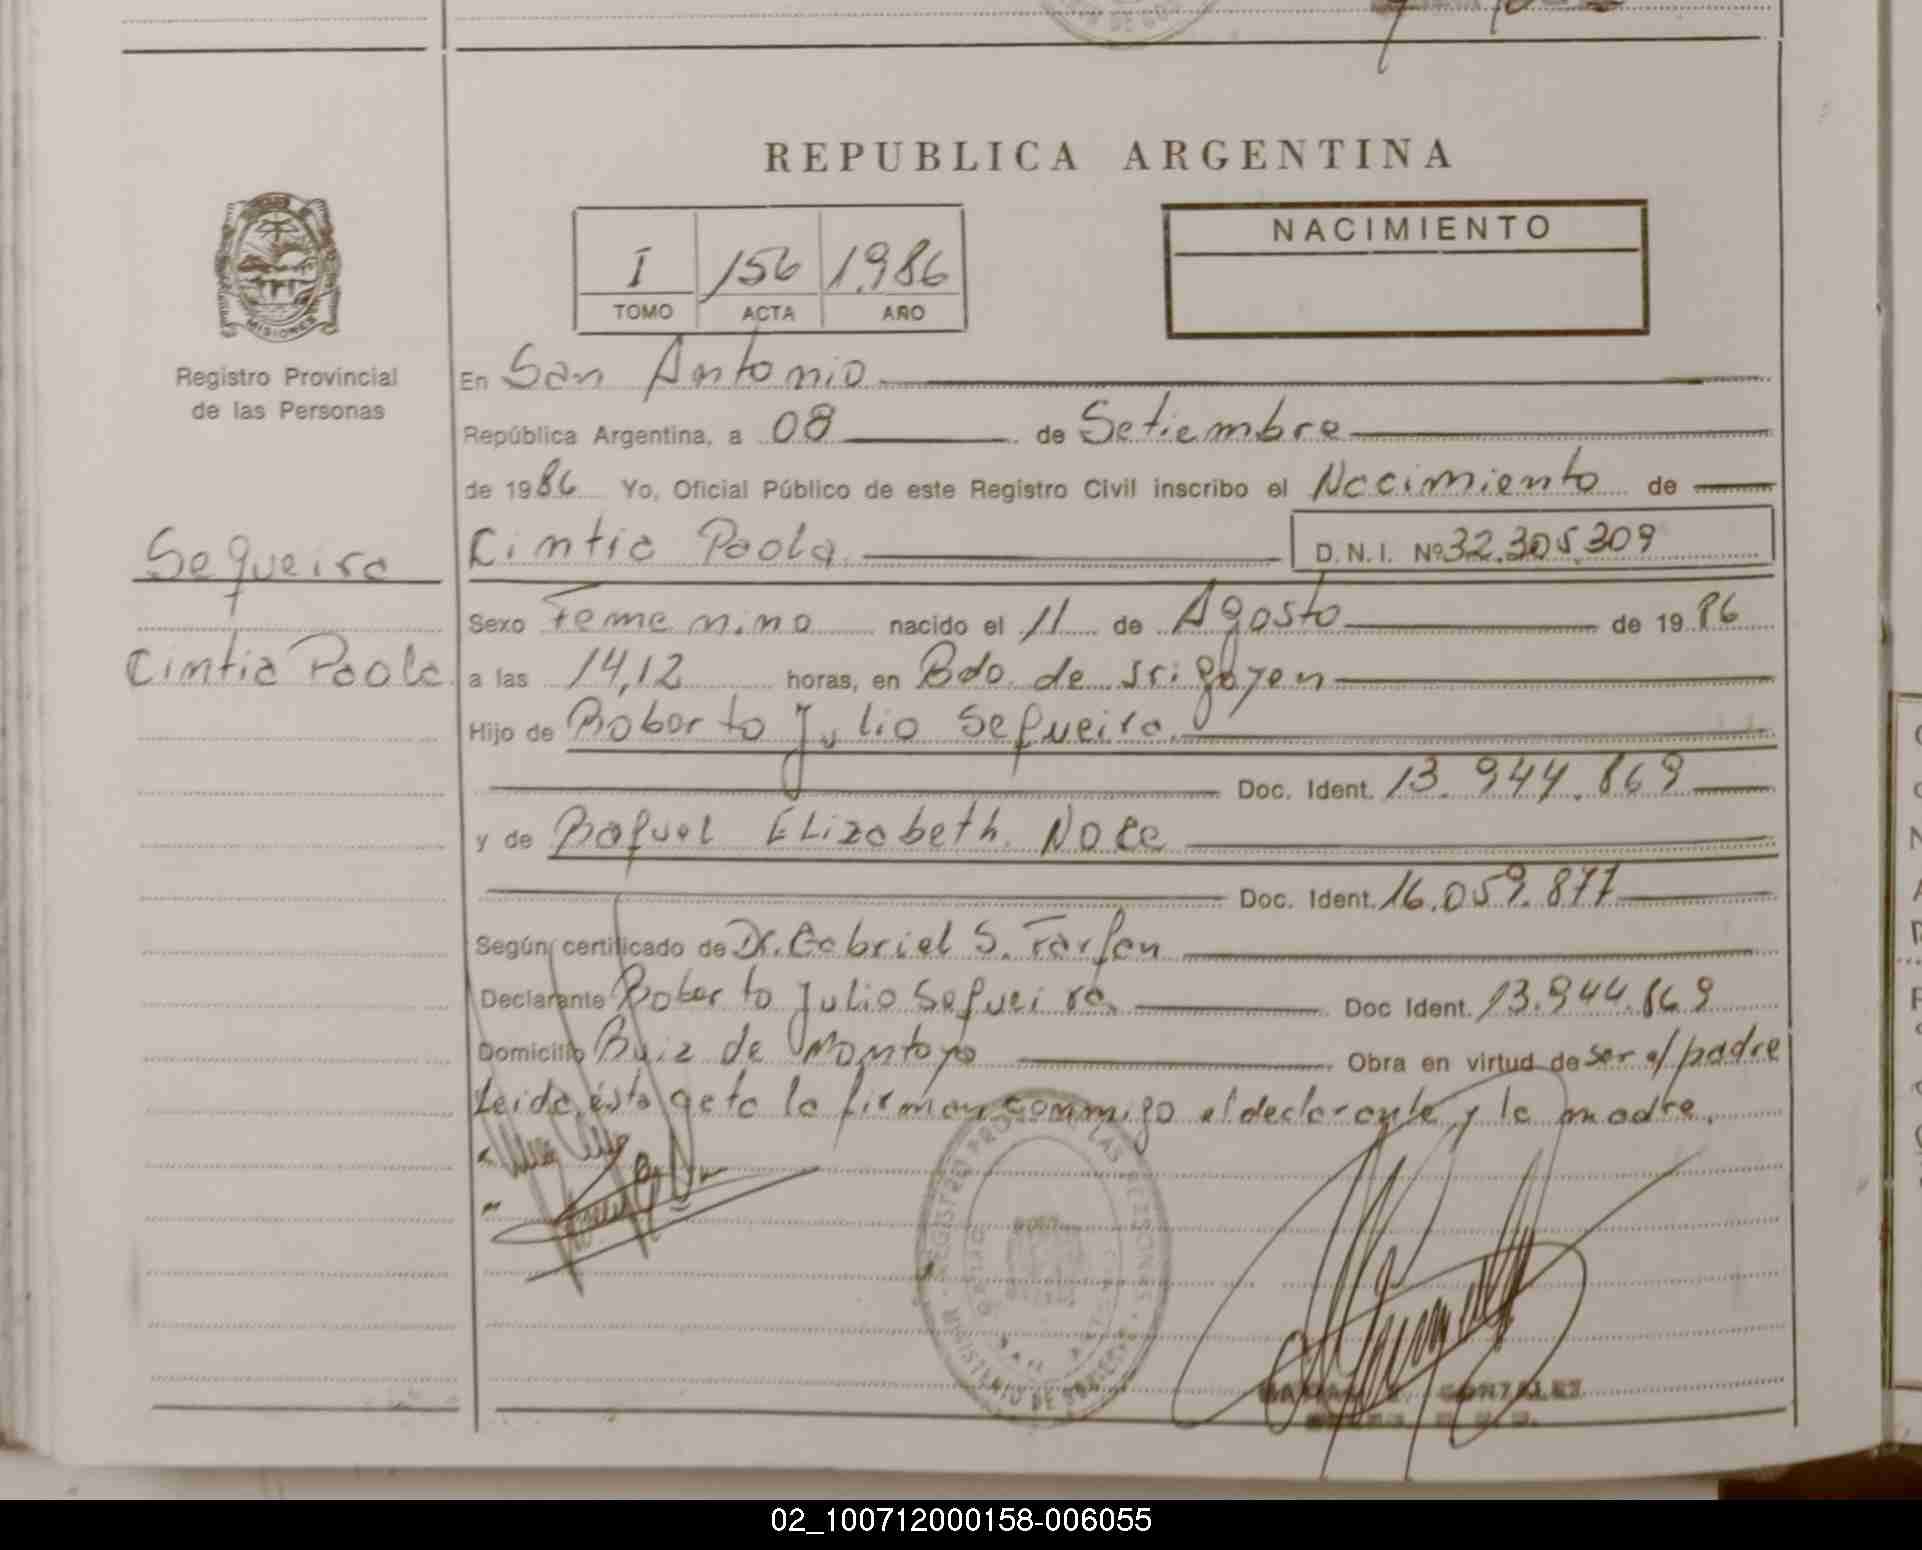 REPUBLICA ARGENTINA
NACIMIENTO
I 156 1.986
TOMO ACTA AÑO
MISIONES
Registro Provincial
de las Personas
En San Antonio
República Argentina, a 08 de Setiembre
de 1986 Yo, Oficial Público de este Registro Civil inscribo el Nacimiento de
Sequeira
Cintia Paola
Cintia Paola D. N. I. Nº 32.305.309
Sexo Femenino nacido el 11 de Agosto de 1986
a las 14,12 horas, en Bdo. de Irigoyen
Hijo de Roberto Julio Sequeira
Doc. Ident. 13.944.869
y de Raquel Elizabeth
Doc. Ident. 16.059.877
Según certificado de Dr. Gabriel S. Farfan
Declarante Roberto Julio Sequeira Doc Ident. 13.944.869
Domicilio Ruiz de Montoya Obra en virtud de ser el padre
Leida ésta acta la firman conmigo el declarante y la madre.
REGISTRO PROV. DE LAS PERSONAS
MINISTERIO DE GOBIERNO
GONZALEZ
02_100712000158-006055